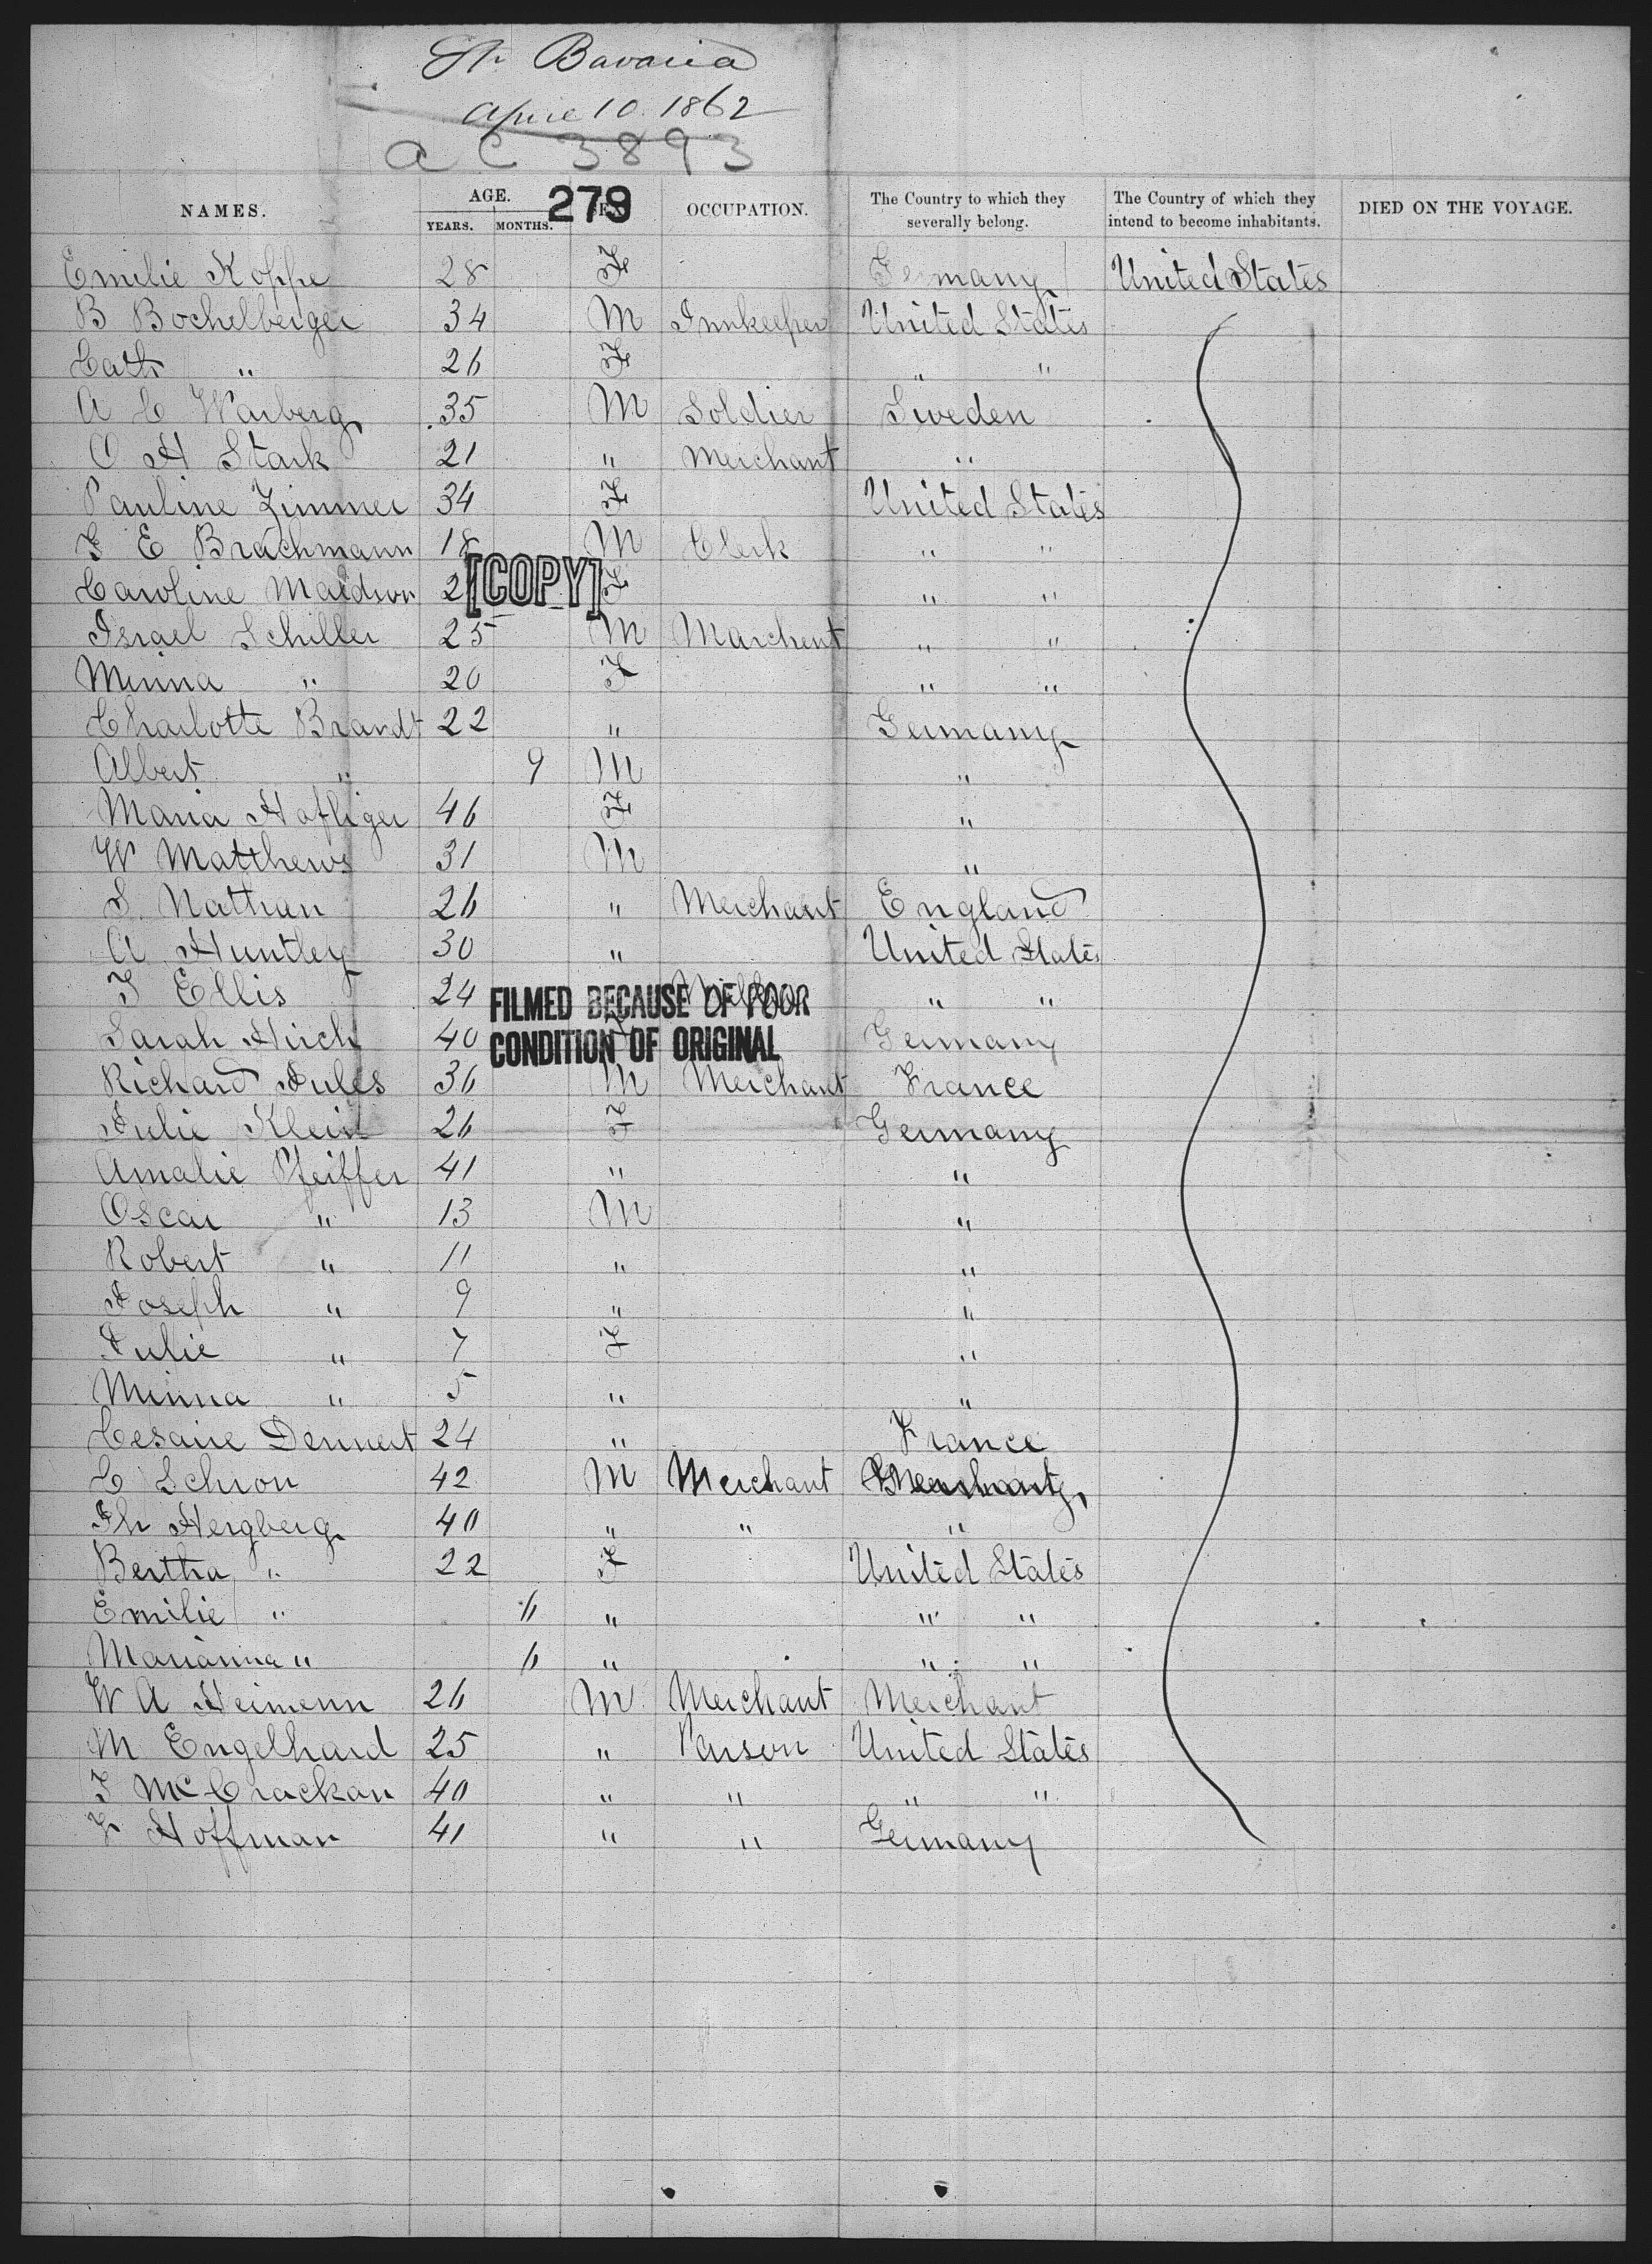 Str Bavaria
April 10. 1862
a c 3893
279
NAMES. AGE. YEARS. MONTHS. SEX OCCUPATION. The Country to which they severally belong. The Country of which they intend to become inhabitants. DIED ON THE VOYAGE.
Emilie Koppe 28 F Germany United States
B Bochelberger 34 M Innkeeper United States
Cath " 26 F " "
A C Warberg 35 M Soldier Sweden
O H Stark 21 " Merchant "
Pauline Zimmer 34 F United States
F E Brachmann 18 M Clerk " "
[COPY]
Caroline F " "
Israel Schiller 25 M Marchent " "
Minna " 20 F " "
Charlotte Brandt 22 " Germany
Albert " 9 M "
Maria Hofliger 46 F "
W Matthews 31 M "
S. Nathan 26 " Merchant England
A Huntley 30 " United States
J Ellis 24 " "
FILMED BECAUSE OF POOR
CONDITION OF ORIGINAL
Sarah Hirch 40 Germany
Richard Jules 36 M Merchant France
Julie Klein 26 F Germany
Amalie Pfeiffer 41 " "
Oscar " 13 M "
Robert " 11 " "
Joseph " 9 " "
Julie " 7 F "
Minna " 5 " "
Cesaire Dennert 24 " France
C Schron 42 M Merchant
Th Hergberg 40 " " "
Bertha " 22 F United States
Emilie " " " "
Marianna " 6 " " "
W A Heimenn 26 M Merchant Merchant
M Engelhard 25 " Parson United States
J McCrackan 40 " " " "
F Hoffman 41 " " Germany